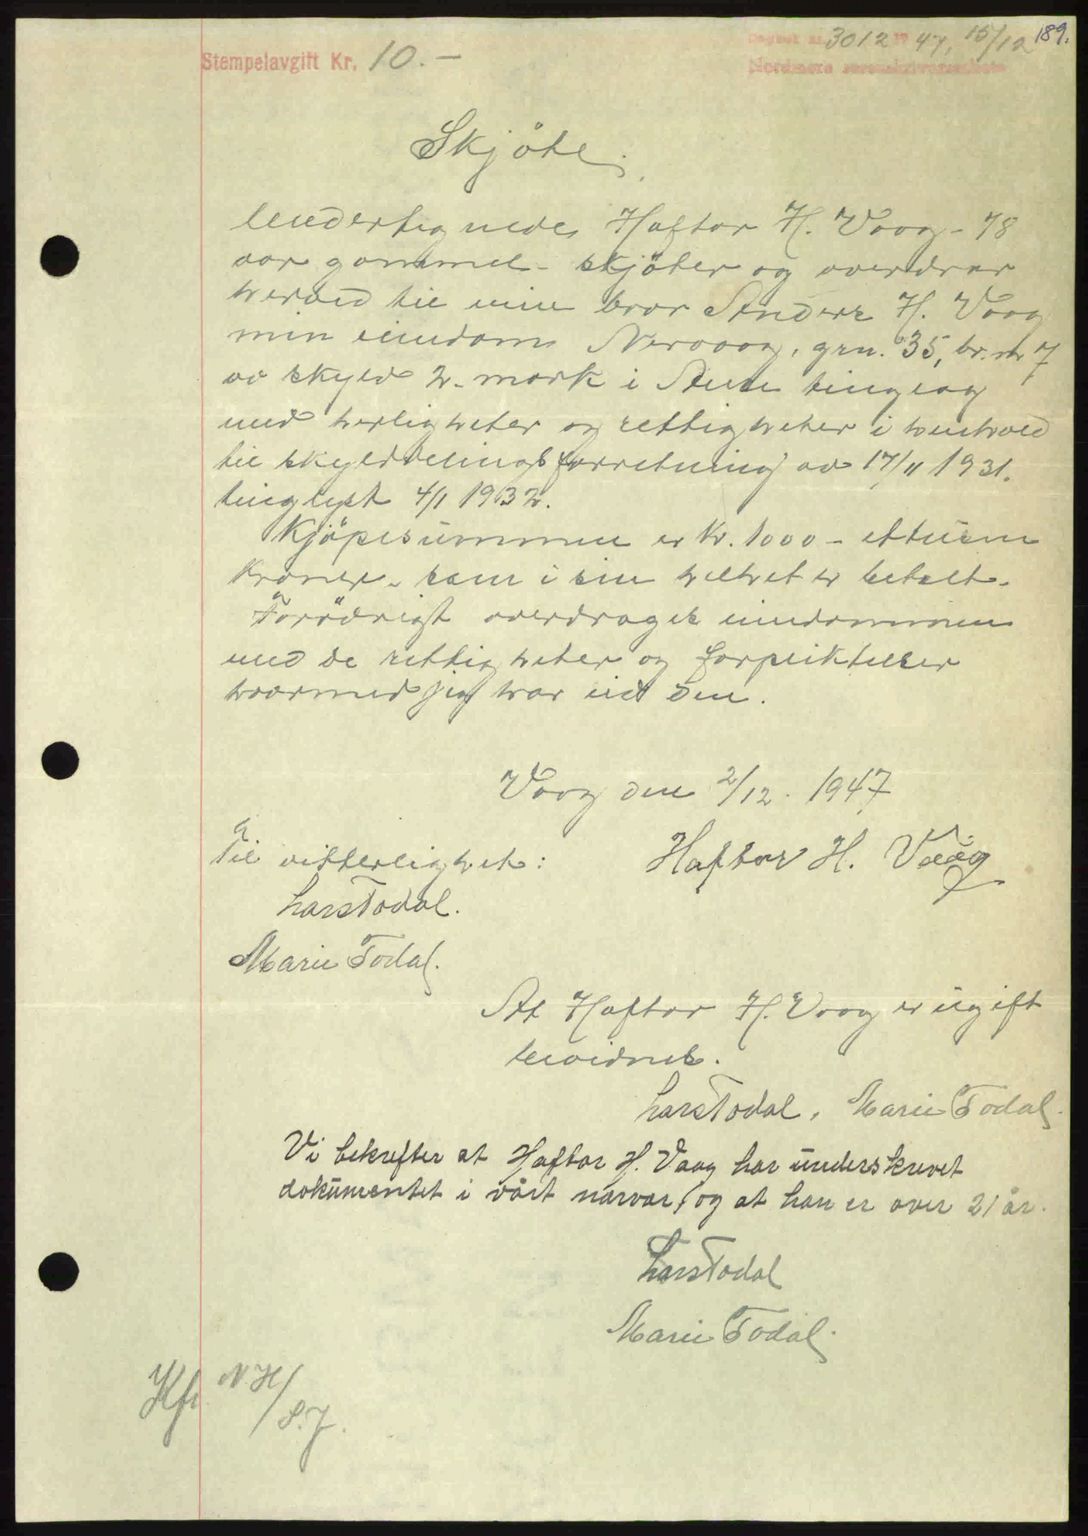 189.
Stempelavgift Kr. 10.—
Dagbok nr. 3012 19 47, 15/12
Nordmøre sorenskriverembete
Skjöte.
Undertegnede Haftor H. Vaag - 78
aar gammel - skjöter og overdrar
herved til min bror Anders H. Vaag
min eiendom Nervaag, grn. 35, br. nr 7
av skyld 2 - mark i Stem tinglag
med herligheter og rettigheter i henhold
til skylddelingsforretning av 17/11 1931.
tinglyst 4/1 1932.
Kjöpesummen er kr. 1000 - ettusen
kroner - som i sin helhet er betalt.
Forövrigt overdrages eiendommen
med de rettigheter og forpliktelser
hvormed jeg har eid den.
Vaag den 2/12. 1947
Haftor H. Vaag
Til vitterlighet:
Lars Todal.
Marie Todal.
At Haftor H. Vaag er ugift
bevidnes.
Lars Todal. Marie Todal.
Vi bekrefter at Haftor H. Vaag har underskrevet
dokumentet i vårt nærvær, og at han er over 21 år.
Lars Todal
Marie Todal.
Kfr NH/S.J.